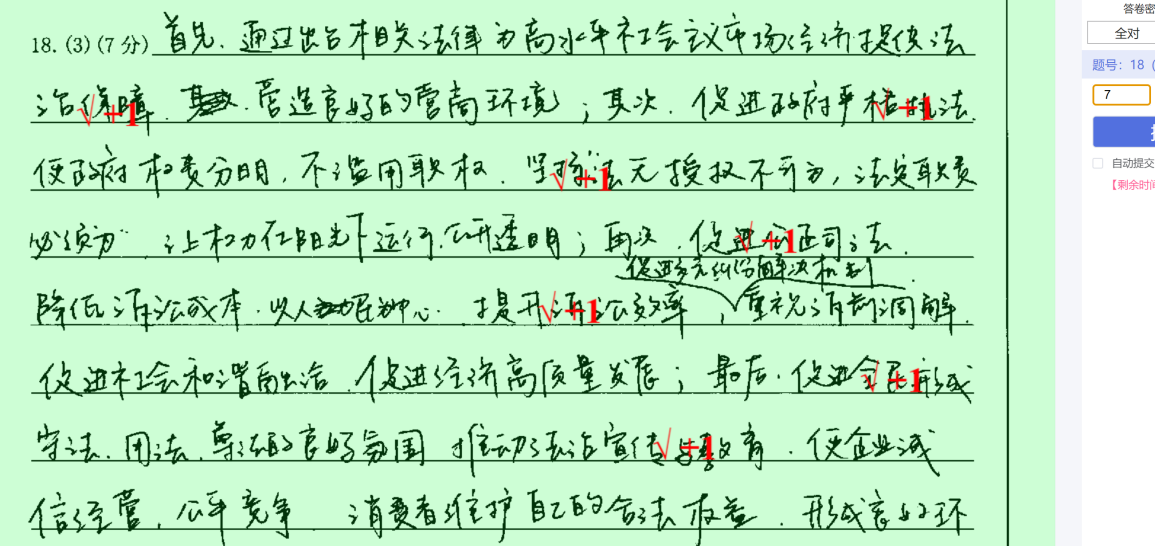 18. (3) (7分) 首先，通过出台相关法律为高水平社会主义市场经济提供法
治保障，营造良好的营商环境；其次，促进政府严格执法，
使政府权责分明，不滥用职权，坚持“法无授权不可为，法定职责
必须为”，让权力在阳光下运行，公开透明；再次，促进公正司法，
促进多元纠纷解决机制
降低诉讼成本，以人民为中心，提升诉讼效率，重视诉前调解，
促进社会和谐而出治，促进经济高质量发展；最后，促进全民形成
守法、用法、尊法的良好氛围，推动法治宣传与教育，使企业诚
信经营，公平竞争，消费者维护自己的合法权益，形成良好环
√+1
√+1
√+1
√+1
√+1
√+1
√+1
答卷密
全对
题号：18（
7
自动提交
【剩余时间